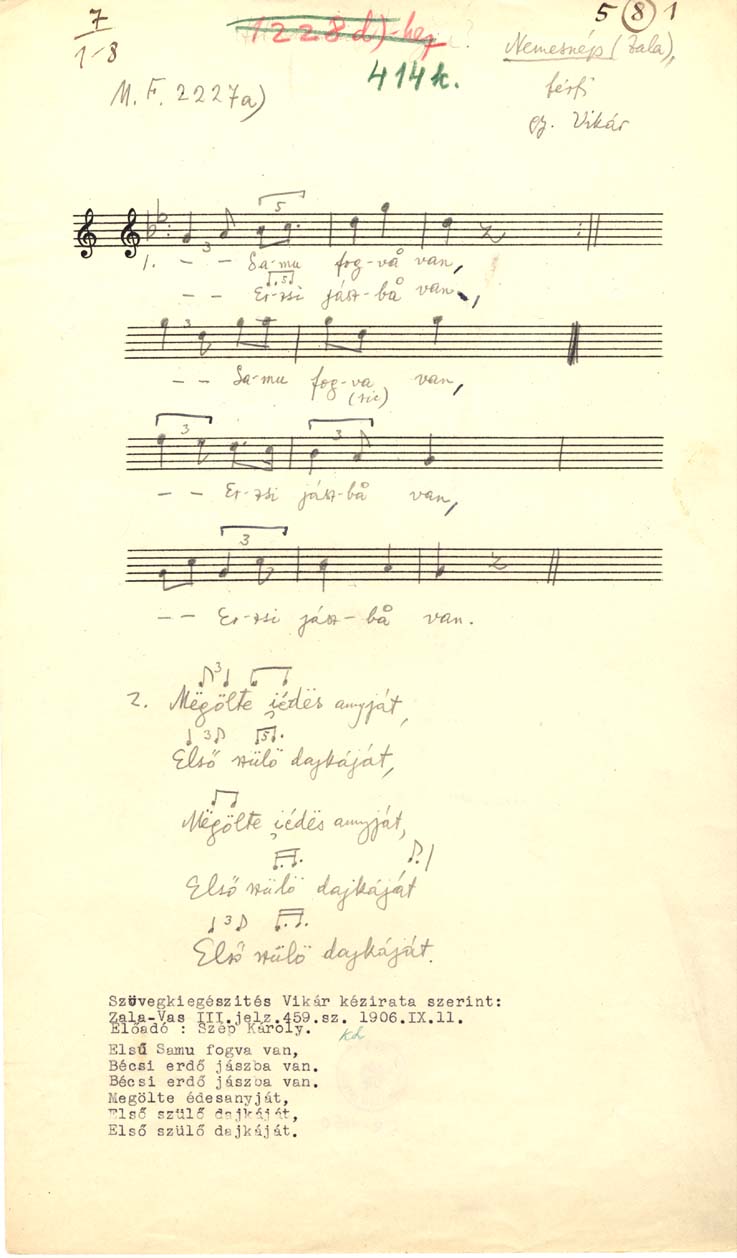 7
1-8
1228d)-hez
414k.
5 8 1
Nemesnép (Zala),
férfi
gy. Vikár
M. F. 2227a)
5
3
1. – – Sa-mu fog-vå van,
– – Er-zsi jász-bå van,
3
– – Sa-mu fog-va van,
(sic)
3 3
– – Er-zsi jász-bå van,
3
– – Er-zsi jász-bå van.
3
2. Mëgölte i̯édës annyját,
3 5
Első szülő dajkáját,
Mëgölte i̯édës annyját,
Első szülő dajkáját
3
Első szülő dajkáját.
Szövegkiegészités Vikár kézirata szerint:
Zala-Vas III.jelz.459.sz. 1906.IX.11.
Előadó : Szép Károly.
Elsű Samu fogva van,
Bécsi erdő jászba van.
Bécsi erdő jászba van.
Megölte édesanyját,
Első szülő dajkáját,
Első szülő dajkáját.